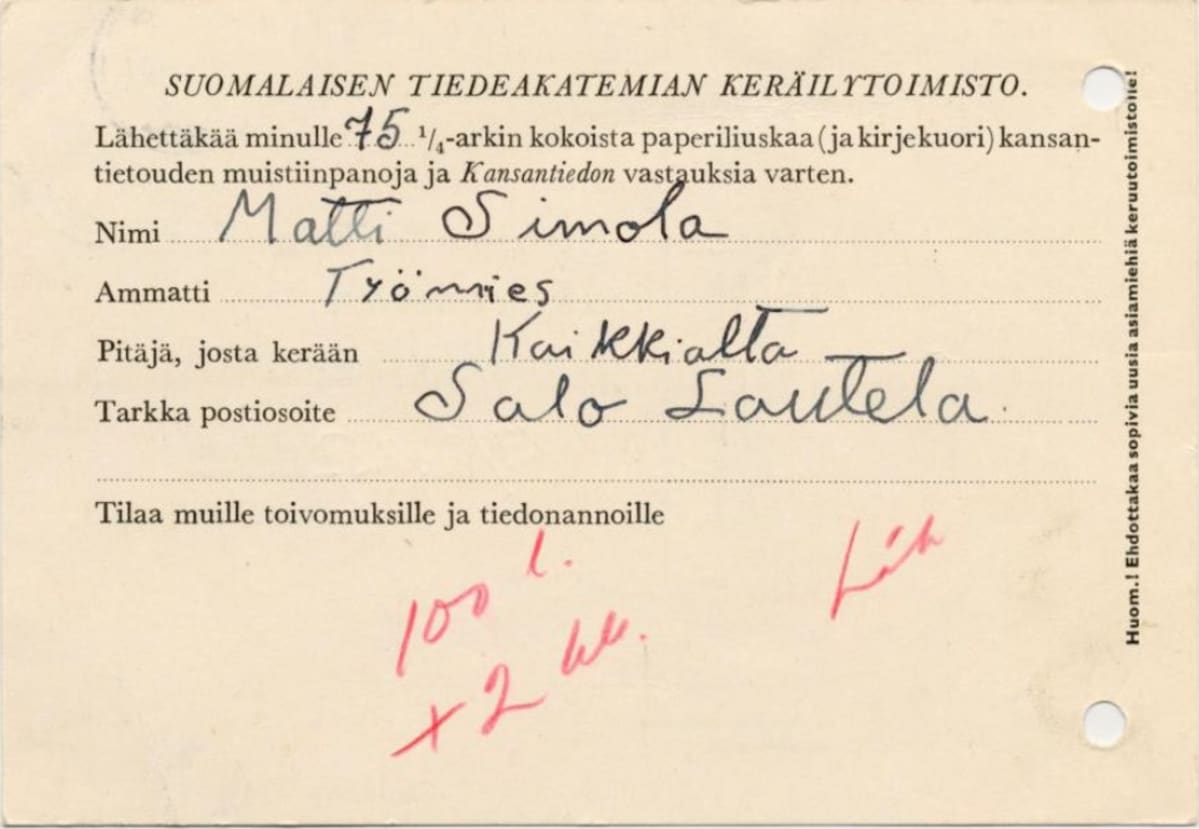 SUOMALAISEN TIEDEAKATEMIAN KERÄILYTOIMISTO.
Lähettäkää minulle 75 ¹/₄-arkin kokoista paperiliuskaa (ja kirjekuori) kansan-
tietouden muistiinpanoja ja Kansantiedon vastauksia varten.
Nimi Matti Simola
Ammatti Työmies
Pitäjä, josta kerään Kaikkialta
Tarkka postiosoite Salo Lautela
Tilaa muille toivomuksille ja tiedonannoille
100 l.
+2 kk.
Läh
Huom.! Ehdottakaa sopivia uusia asiamiehiä keruutoimistolle!